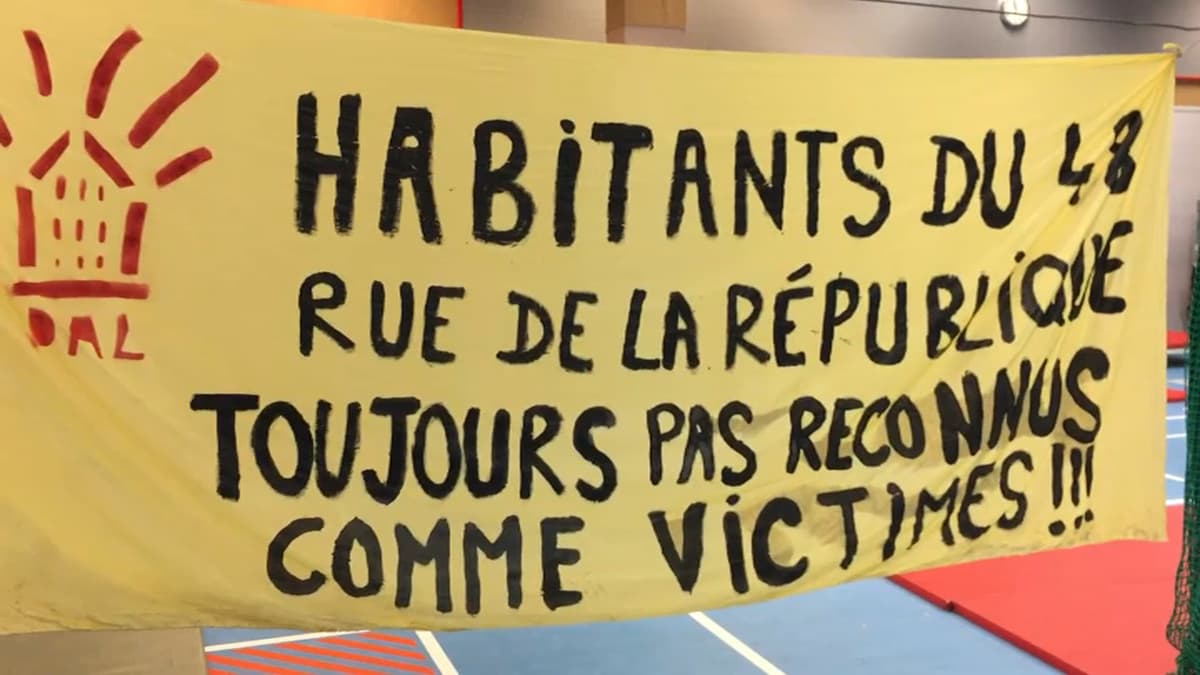 DAL
HABiTANTS DU 48
RUE DE LA RÉPUBLiQUE
TOUJOURS PAS RECONNUS
COMME ViCTIMES !!!